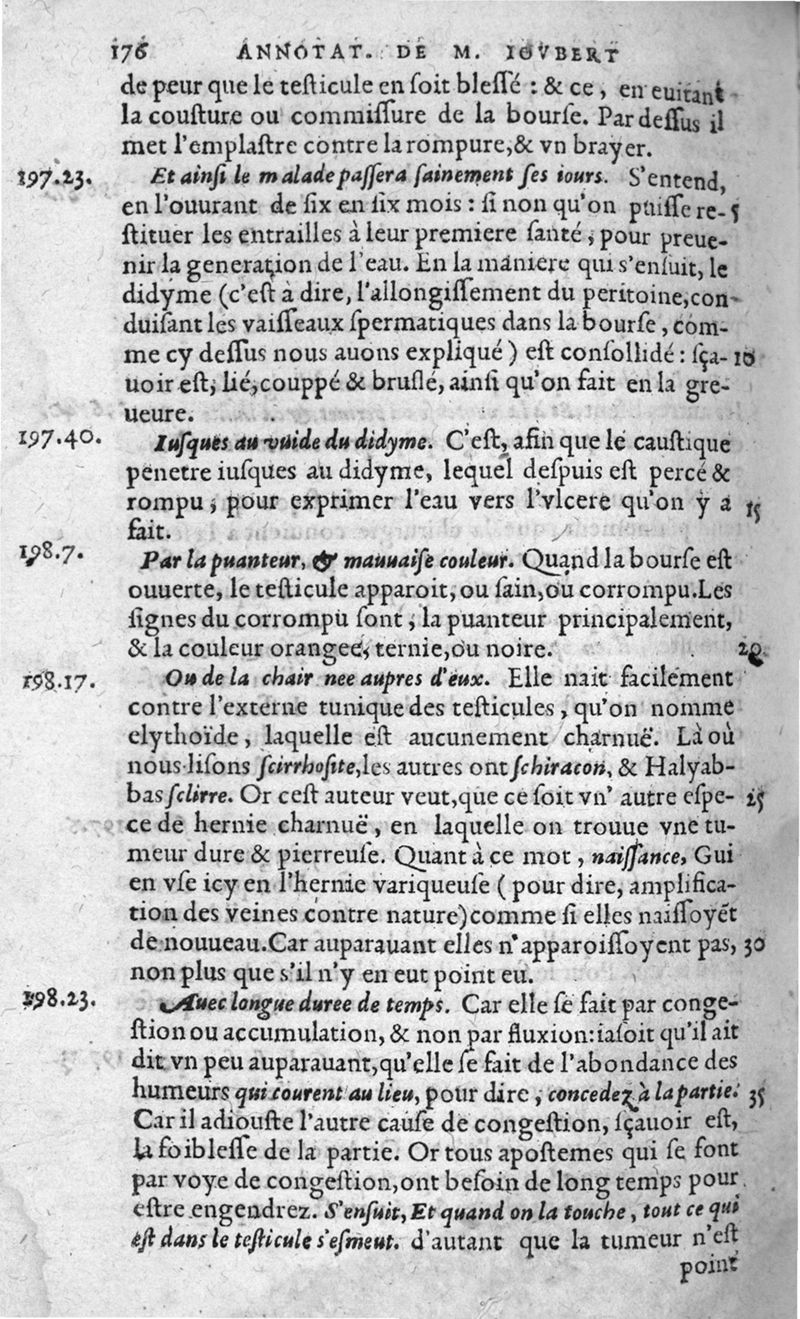 176 ANNOTAT. DE M. IOVBERT
de peur que le testicule en soit blessé : & ce, en euitant
la cousture ou commissure de la bourse. Par dessus il
met l'emplastre contre la rompure,& vn brayer.
197.23. Et ainsi le malade passera sainement ses iours. S'entend,
en l'ouurant de six en six mois : si non qu'on puisse re- 5
stituer les entrailles à leur premiere santé, pour preue-
nir la generation de l'eau. En la maniere qui s'ensuit, le
didyme (c'est à dire, l'allongissement du peritoine,con-
duisant les vaisseaux spermatiques dans la bourse, com-
me cy dessus nous auons expliqué) est consollidé : sça- 10
uoir est, lié,couppé & bruslé, ainsi qu'on fait en la gre-
ueure.
197.40. Iusques au vuide du didyme. C'est, afin que le caustique
penetre iusques au didyme, lequel despuis est percé &
rompu, pour exprimer l'eau vers l'vlcere qu'on y a 15
fait.
198.7. Par la puanteur, & mauuaise couleur. Quand la bourse est
ouuerte, le testicule apparoit, ou sain,ou corrompu.Les
signes du corrompu sont, la puanteur principalement,
& la couleur orangee, ternie,ou noire. 20
198.17. Ou de la chair nee aupres d'eux. Elle nait facilement
contre l'externe tunique des testicules, qu'on nomme
elythoïde, laquelle est aucunement charnuë. Là où
nous lisons scirrhosite,les autres ont schiracon, & Halyab-
bas sclirre. Or cest auteur veut,que ce soit vn' autre espe- 25
ce de hernie charnuë, en laquelle on trouue vne tu-
meur dure & pierreuse. Quant à ce mot, naissance, Gui
en vse icy en l'hernie variqueuse (pour dire, amplifica-
tion des veines contre nature)comme si elles naissoyẽt
de nouueau.Car auparauant elles n'apparoissoyent pas, 30
non plus que s'il n'y en eut point eu.
198.23. Auec longue duree de temps. Car elle se fait par conge-
stion ou accumulation, & non par fluxion:iasoit qu'il ait
dit vn peu auparauant,qu'elle se fait de l'abondance des
humeurs qui courent au lieu, pour dire, concedez à la partie. 35
Car il adiouste l'autre cause de congestion, sçauoir est,
la foiblesse de la partie. Or tous apostemes qui se font
par voye de congestion,ont besoin de long temps pour
estre engendrez. S'ensuit, Et quand on la touche, tout ce qui
est dans le testicule s'esmeut. d'autant que la tumeur n'est
point